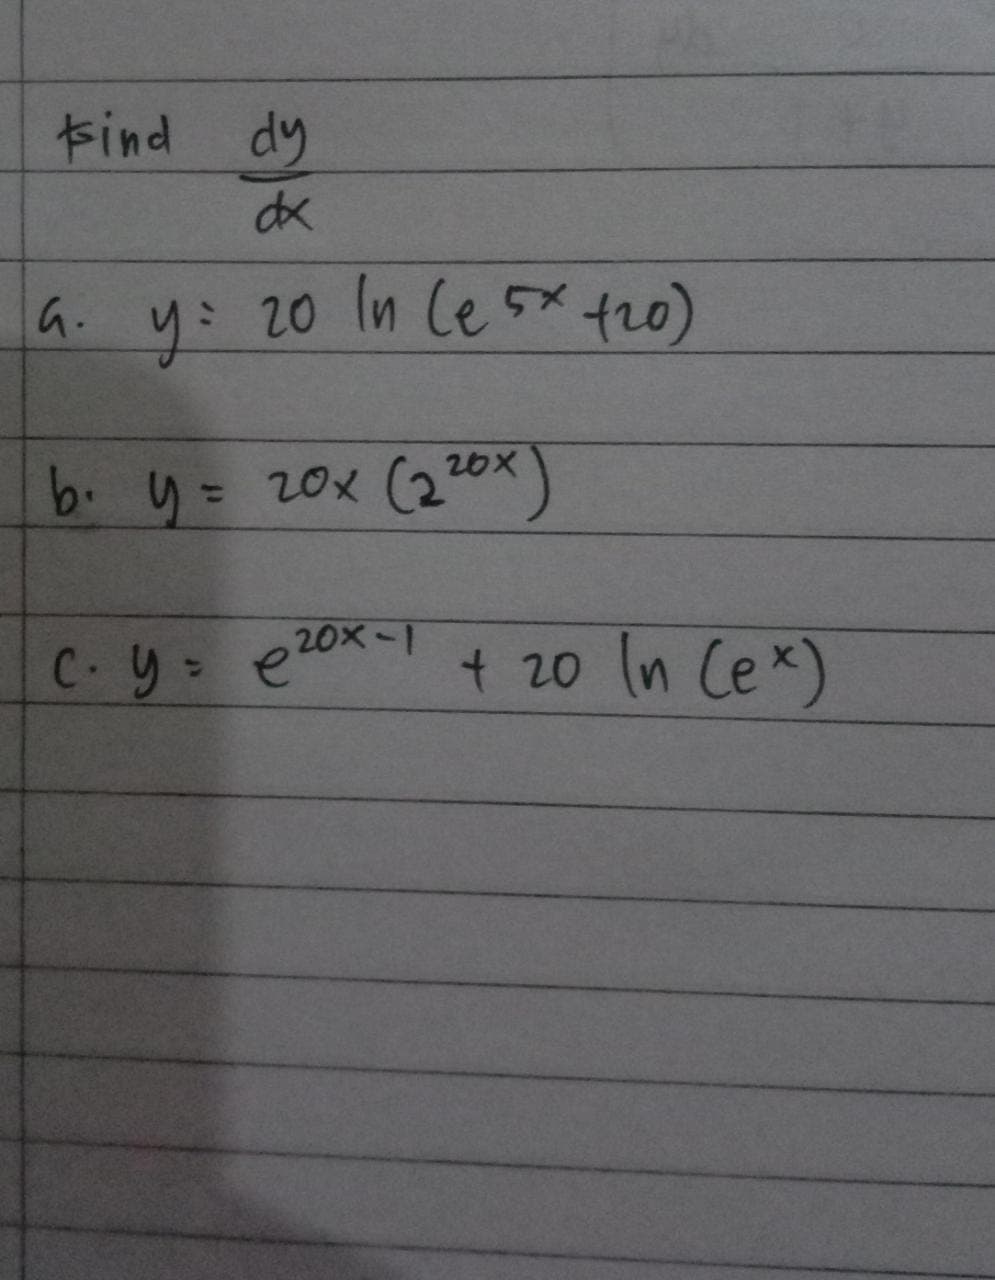 Find dy
dx
a. y = 20 ln (e^5x + 20)
b. y = 20x (2^20x)
c. y = e^20x-1 + 20 ln (e^x)